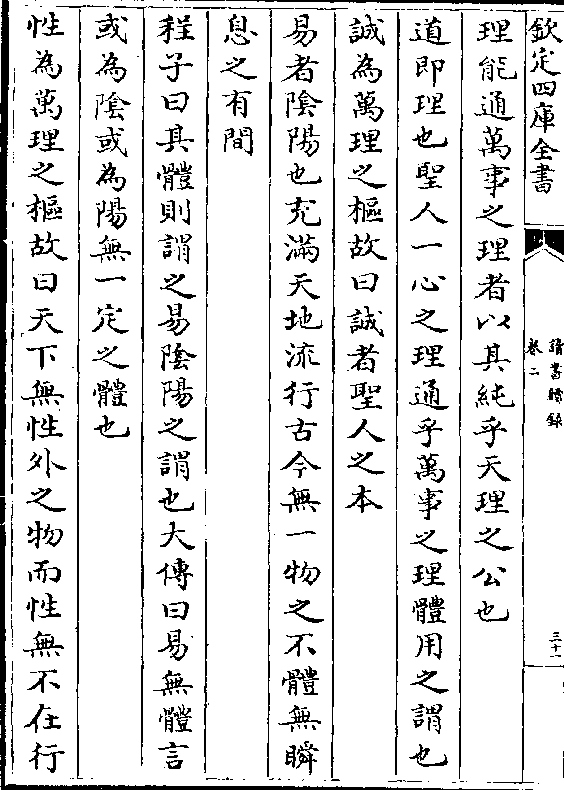 欽定四庫全書
讀書續錄
卷二
三十一
理能通萬事之理者以其純乎天理之公也
道即理也聖人一心之理通乎萬事之理體用之謂也
誠為萬理之樞故曰誠者聖人之本
易者陰陽也充滿天地流行古今無一物之不體無瞬
息之有間
程子曰其體則謂之易陰陽之謂也大傳曰易無體言
或為陰或為陽無一定之體也
性為萬理之樞故曰天下無性外之物而性無不在行